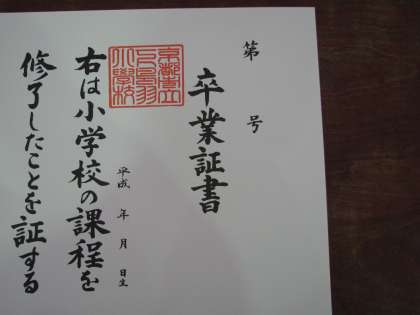 第　号
卒業証書
平成　年　月　日生
右は小学校の課程を
修了したことを証する